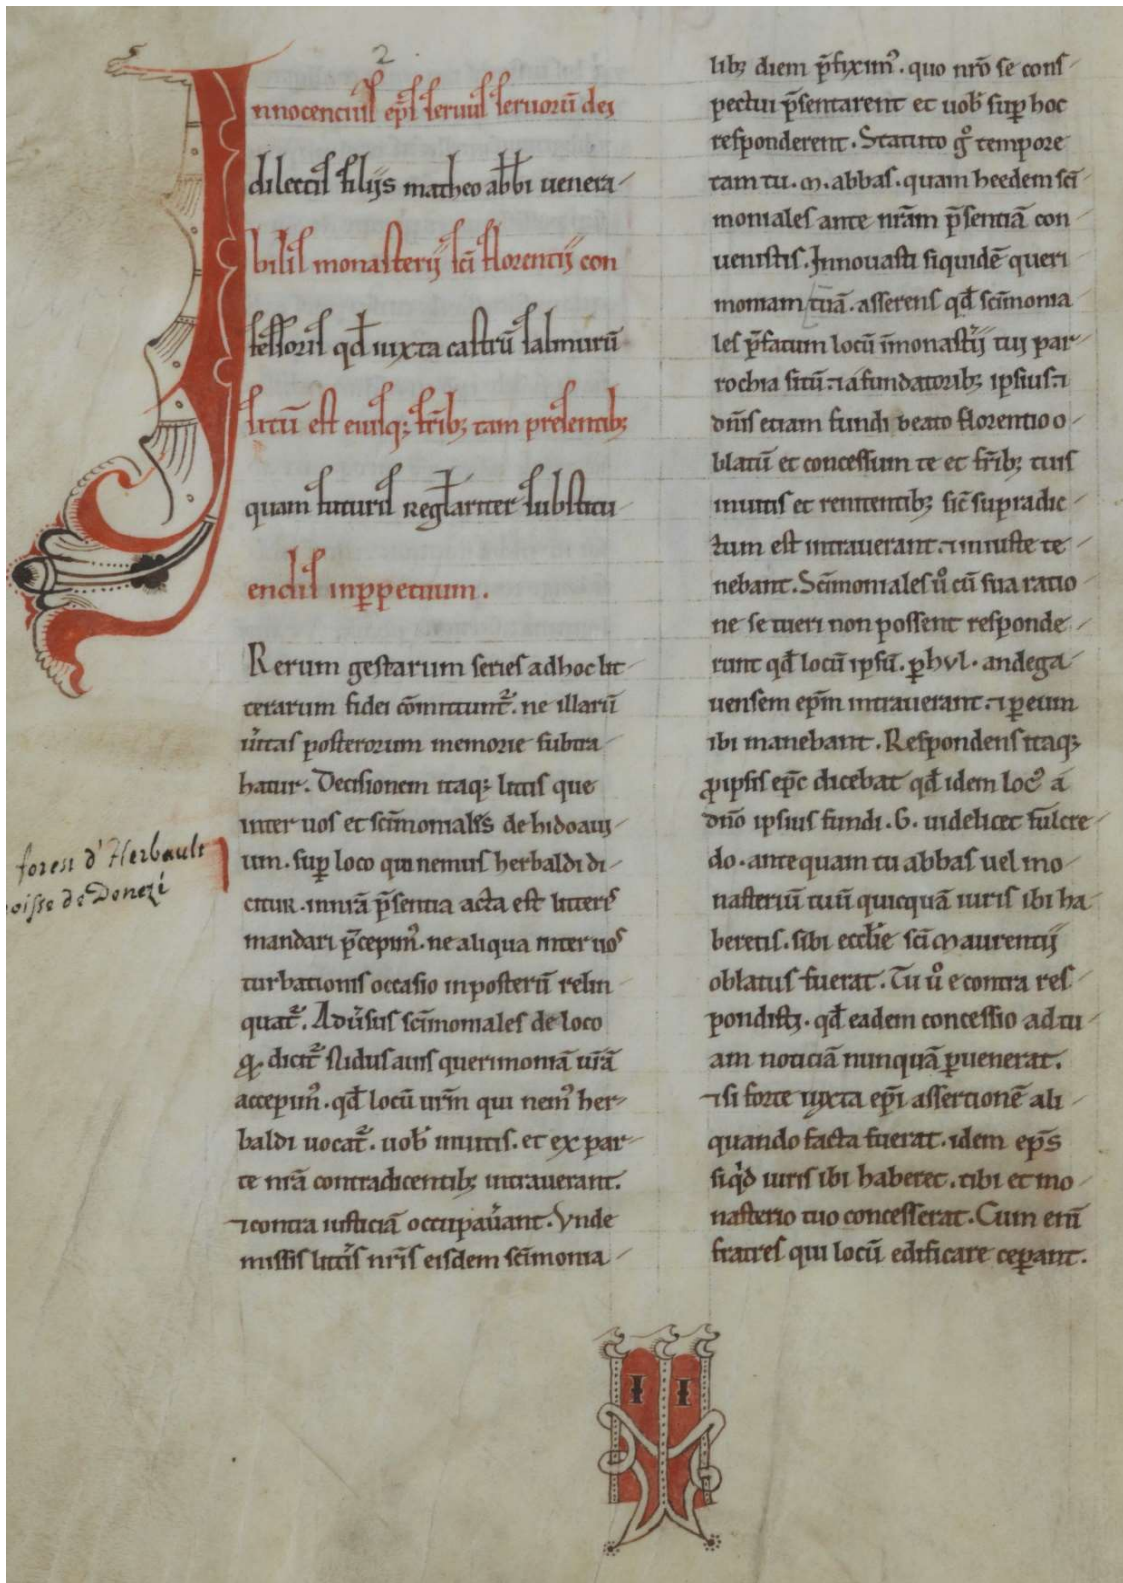 2
Innocencius ep̄s seruus seruorū dei
dilectis filijs matheo abb̄i uenera-
bilis monasterij sc̄i florentij con
fessoris qd̄ iuxta castrū salmurū
sitū est eiusq; fr̄ib; tam presentib;
quam futuris regl̄ariter substitu
endis inp̱petuum.
Rerum gestarum series adhoc lit-
terarum fidei cōmittunt᷑. ne illarū
ūitas posterorum memorie subtra-
hatur. Decisionem itaq; litis que
inter uos et sc̄imoniales de hidoauj-
um. sup̱ loco qui nemus herbaldi di-
citur. innr̄a p̄sentia acta est litteris
mandari p̄cepimꝰ. ne aliqua inter uos
turbationis occasio inposterū relin-
quat᷑. Adūsus sc̄imoniales de loco
q̱. dicit᷑ Nidusauis querimoniā ur̄ā
accepimꝰ. qd̄ locū ur̄m qui nemꝰ her-
baldi uocat᷑. uob̄ inuitis. et ex par-
te nr̄a contradicentib; intrauerant.
⁊ contra iusticiā occupaūant. Vnde
missis litt̄is nr̄is eisdem sc̄imonia-
lib; diem p̄fiximꝰ. quo nr̄o se cons-
pectui p̄sentarent et uob̄ sup̱ hoc
responderent. Statuto gͦ tempore
tam tu. M. abbas. quam heedem sc̄i
moniales ante nr̄am p̄sentiā con
uenistis. Innouasti siquidē queri
moniam tuā. asserens qd̄ sc̄imonia
les p̄fatum locū īmonast̄ij tuj par-
rochia sitū. ⁊ a fundatorib; ipsius. ⁊
dn̄is etiam fundi beato florentio o-
blatū et concessum te et fr̄ib; tuis
inuitis et renitentib; sic̄ supradic-
tum est intrauerant. ⁊ iniuste te
nebant. Sc̄imoniales uͦ cū sua ratio
ne se tueri non possent responde-
runt qd̄ locū ipsū. p̱ hvl. andega-
uensem ep̄m intrauerant. ⁊ p̱ eum
ibi manebant. Respondens itaq;
ꝓipsis ep̄c dicebat qd̄ idem locꝰ a
dn̄o ipsius fundi. G. uidelicet fulcre
do. antequam tu abbas uel mo-
nasteriū tuū quicquā iuris ibi ha-
beretis. sibi eccl̄ie sc̄i Maurentij
oblatus fuerat. Tu uͦ econtra res-
pondisti. qd̄ eadem concessio ad tu-
am noticiā nunquā p̱uenerat.
⁊ si forte iuxta ep̄i assertionē ali-
quando facta fuerat. idem ep̄s
siqͥd iuris ibi haberet. tibi et mo-
nasterio tuo concesserat. Cum enī
fratres qui locū edificare cep̱ant.
forest d'Herbault
oisse de Donezé
II